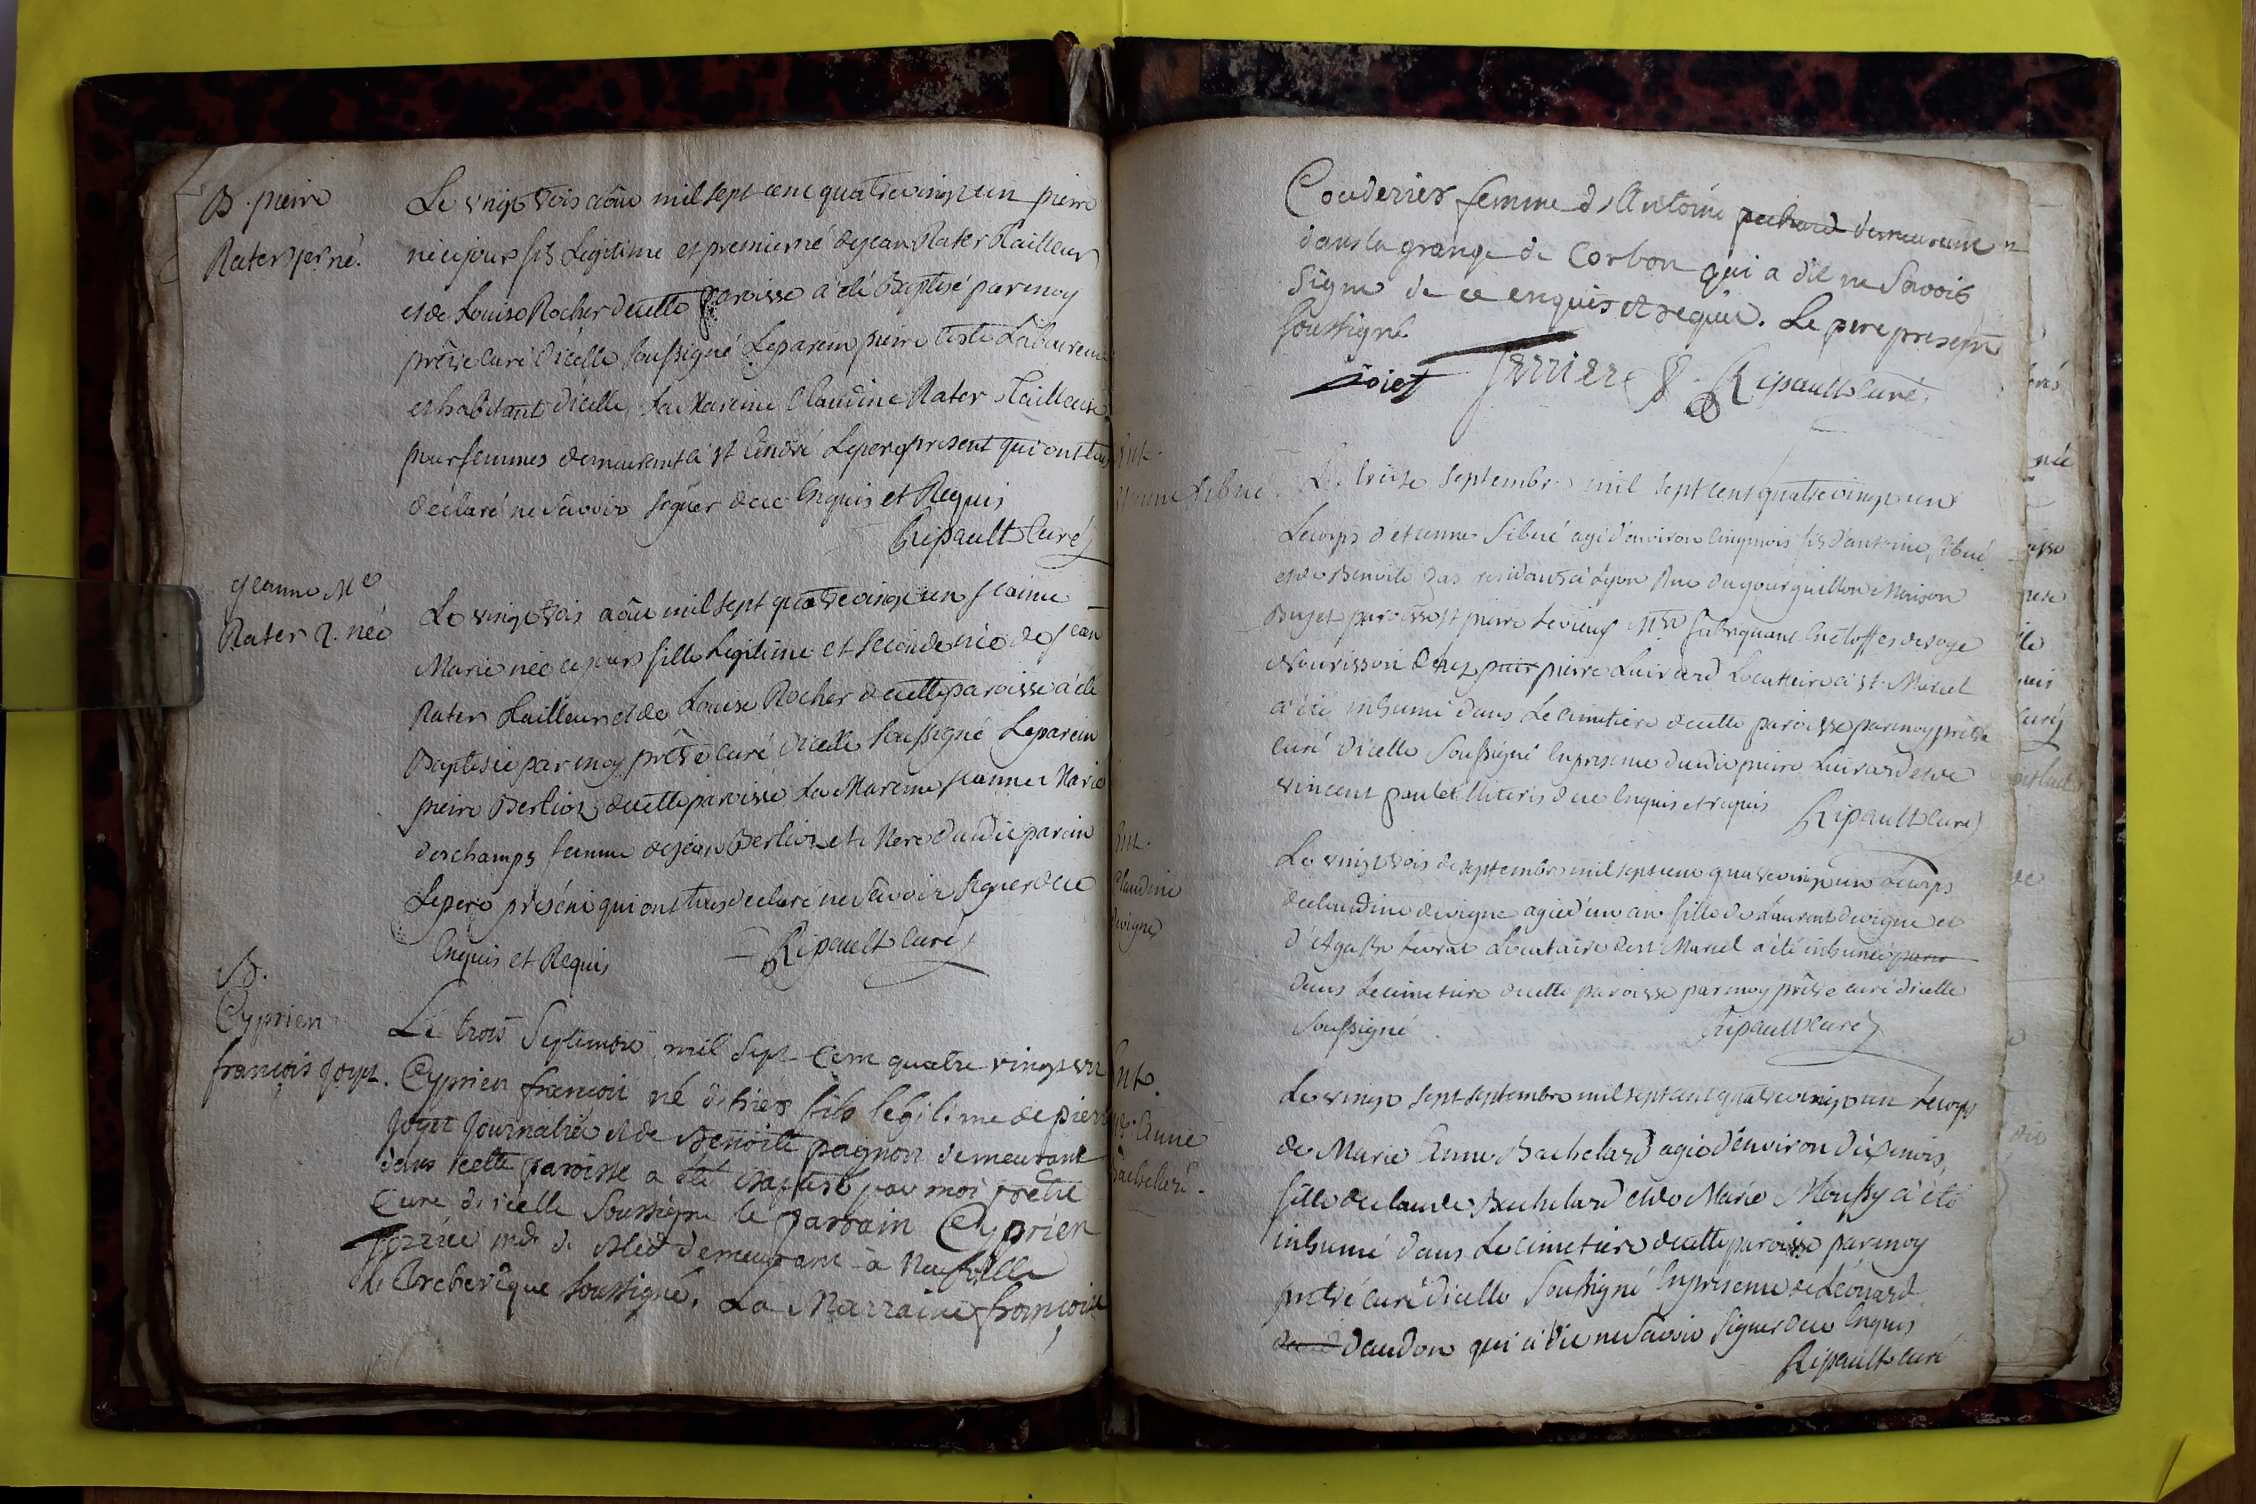 B. pierre
Rater 1er né.
Le vingt trois aôut mil sept cent quatre vingt un pierre
né ce jour fils Legitime et premier né de jean Rater Tailleur
et de Louise Rocher de cette paroisse a été Baptisé par moy
prêtre curé d'icelle soussigné Le parein pierre teste Laboureur
et habitant d'icelle, La Mareine Claudine Rater Tailleuse
pour femmes demeurant à st André Le pere present qui ont tous
déclaré ne savoir signer de ce Enquis et Requis
Ripault Curé
Jeanne Me
Rater 2. née
Le vingt trois aôut mil sept quatre vingt un jeanne
Marie née ce jour fille Legitime et seconde née de jean
Rater Tailleur et de Louise Rocher de cette paroisse a été
Baptisée par moy prêtre curé d'icelle soussigné Le parein
pierre Berlioz de cette paroisse La Mareine jeanne Marie
deschamps femme de jean Berlioz et Mere dudit parein
Le pere présent qui ont tous declaré ne savoir signer de ce
Enquis et Requis Ripault Curé
B.
Cyprien
françois Joyet.
Le trois Septembre mil Sept Cent quatre vingt un
Cyprien françois né d'hier fils legitime de pierre
Joyet Journalier et de Benoite pagnon demeurant
dans cette paroisse a été baptisé par moi prêtre
Curé di'celle Soussigné le parrain Cyprien
md. de Bled demeurant à Neufville
L'Archeveque soussigné. La Marraine françoise
Couderier femme d'Antoine pechard demeurant
dans la grange de Corbon qui a dit ne Savoir
Signe de ce enquis et requis. Le pere present
Soussigné
joiet ferrier Ripault curé
Ent.
Etienne Sibué.
Le treize Septembre mil sept cent quatre vingt un
Le corps d'etienne Sibué agé d'environ cinq mois fils d'antoine Sibué
et de Benoite Gas residants à Lyon Rue du gourguillon Maison
Bujet paroisse st pierre Levieux Mtre fabriquant en etoffes de soye
Nourisson chez pierre Luivard Locataire à st Marcel
a été inhumé dans Le cimetiere de cette paroisse par moy prêtre
curé d'icelle Soussigné En presence dudit pierre Luivard et de
vincent poulet illiteris de ce Enquis et requis Ripault Curé
Ent.
Claudine
devigne
Le vingt trois de septembre mil sept cent quatre vingt un Le corps
de claudine devigne agée d'un an fille de Laurent devigne et
d'Agathe favrat Locataire de st Marcel a été inhumée
dans Le cimetiere de cette paroisse par moy prêtre curé d'icelle
Soussigné Ripault curé
Ent.
Me. Anne
Bachelard.
Le vingt Sept septembre mil sept cent quatre vingt un Le corps
de Marie Anne Bachelard agée d'environ dix mois
fille de claude Bachelard et de Marie Moussy a été
inhumé dans Le cimetiere de cette paroisse par moy
prêtre curé d'icelle Soussigné En présence de Léonard
daudon qui a dit ne savoir signer de ce Enquis
Ripault curé